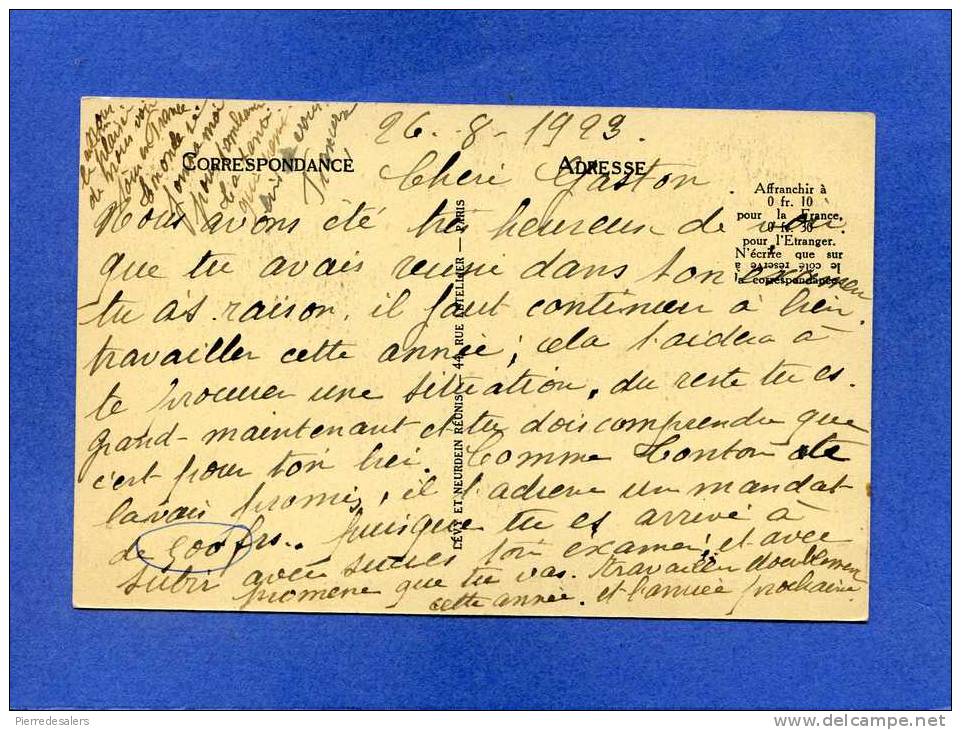 26-8-1923.
CORRESPONDANCE
ADRESSE
Cheri Gaston
Affranchir à
0 fr. 10
pour la France,
0 fr. 30
pour l'Etranger.
N'écrire que sur
le côté réservé à
la correspondance.
Nous avons été très heureux de voir
que tu avais reussi dans ton examen
tu as raison, il faut continuer à bien
travailler cette année, cela t'aidera à
te procurer une situation, du reste tu es
grand maintenant et tu dois comprendre que
c'est pour ton bien. Comme Tonton te
l'avais promis, il t'adresse un mandat
de 500 frs. Puisque tu es arrivé à
subir avec succes ton examen, et avec
promene que tu vas travailler doublement
cette année. et l'année prochaine
le plaisir
de nous voir
tous en France
LÉVY ET NEURDEIN RÉUNIS — 44, RUE LETELLIER — PARIS
Pierredesalers
delcampe.net